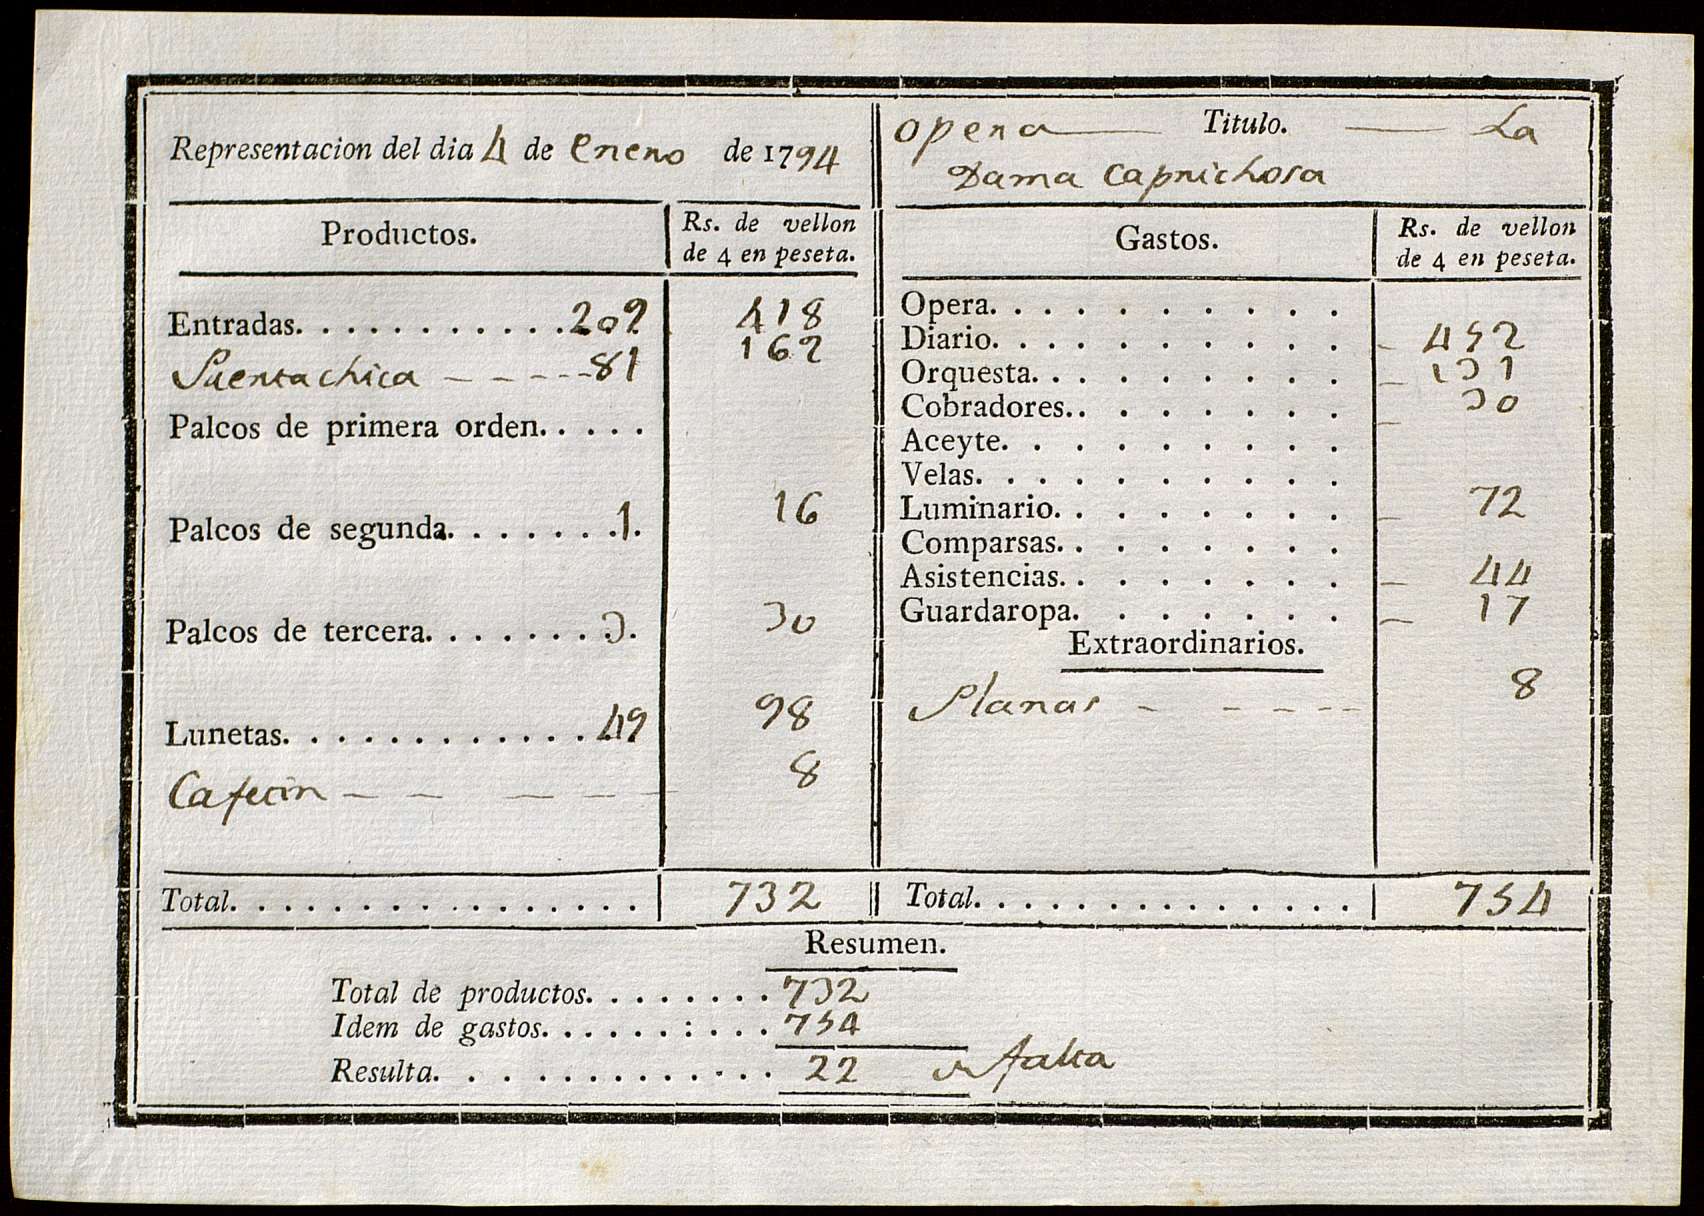 Representacion del dia 4 de Enero de 1794
Opera Titulo. La
Dama Caprichosa
Productos.
Rs. de vellon
de 4 en peseta.
Entradas. . . . . . . . . . . 209 418
Puerta chica - - - - - 81 162
Palcos de primera orden. . . . .
Palcos de segunda. . . . . . . 1. 16
Palcos de tercera. . . . . . . 3. 30
Lunetas. . . . . . . . . . . . 49 98
Cafetin - - - - - 8
Total. . . . . . . . . . . . . . . . 732
Gastos.
Rs. de vellon
de 4 en peseta.
Opera. . . . . . . . . . .
Diario. . . . . . . . . . . 452
Orquesta. . . . . . . . . 131
Cobradores. . . . . . . . 30
Aceyte. . . . . . . . . .
Velas. . . . . . . . . . .
Luminario. . . . . . . . 72
Comparsas. . . . . . . .
Asistencias. . . . . . . . 44
Guardaropa. . . . . . . 17
Extraordinarios.
Planas - - - - - 8
Total. . . . . . . . . . . . . . . 754
Resumen.
Total de productos. . . . . . . . 732
Idem de gastos. . . . . . : . . . 754
Resulta. . . . . . . . . . . . . 22 falta